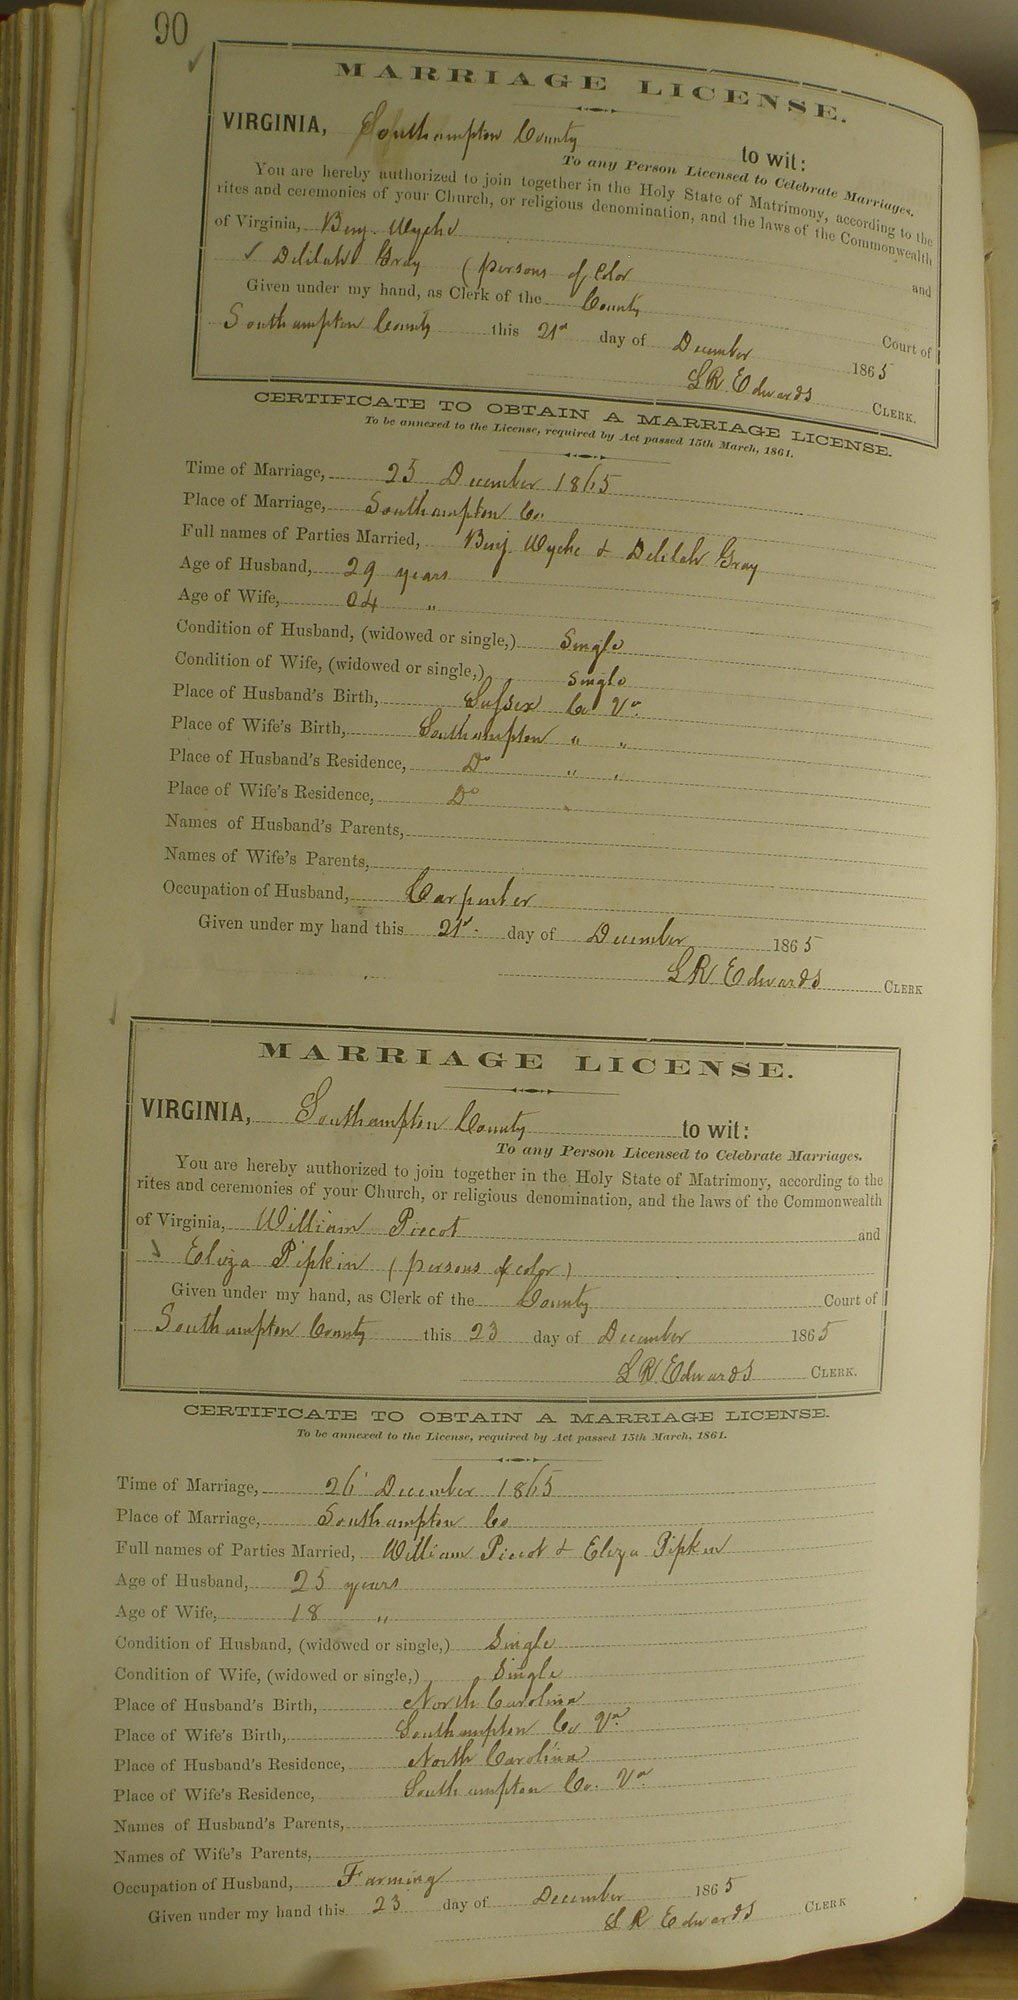 90
MARRIAGE LICENSE.
VIRGINIA, Southampton County to wit:
To any Person Licensed to Celebrate Marriages.
You are hereby authorized to join together in the Holy State of Matrimony, according to the
rites and ceremonies of your Church, or religious denomination, and the laws of the Commonwealth
of Virginia, Benj. Wyche and
✓ Delilah Gray (persons of color
Given under my hand, as Clerk of the County Court of
Southampton County this 21st day of December 1865
LR Edwards CLERK.
CERTIFICATE TO OBTAIN A MARRIAGE LICENSE.
To be annexed to the License, required by Act passed 15th March, 1861.
Time of Marriage, 25 December 1865
Place of Marriage, Southampton Co.
Full names of Parties Married, Benj. Wyche & Delilah Gray
Age of Husband, 29 years
Age of Wife, 24 "
Condition of Husband, (widowed or single,) Single
Condition of Wife, (widowed or single,) Single
Place of Husband's Birth, Sussex Co Va.
Place of Wife's Birth, Southampton " "
Place of Husband's Residence, Do " "
Place of Wife's Residence, Do
Names of Husband's Parents,
Names of Wife's Parents,
Occupation of Husband, Carpenter
Given under my hand this 21st day of December 1865
LR Edwards CLERK
MARRIAGE LICENSE.
VIRGINIA, Southampton County to wit:
To any Person Licensed to Celebrate Marriages.
You are hereby authorized to join together in the Holy State of Matrimony, according to the
rites and ceremonies of your Church, or religious denomination, and the laws of the Commonwealth
of Virginia, William Piecot and
Eliza Pipkin (persons of color)
Given under my hand, as Clerk of the County Court of
Southampton County this 23 day of December 1865
LR Edwards CLERK.
CERTIFICATE TO OBTAIN A MARRIAGE LICENSE.
To be annexed to the License, required by Act passed 15th March, 1861.
Time of Marriage, 26 December 1865
Place of Marriage, Southampton Co
Full names of Parties Married, William Piecot & Eliza Pipkin
Age of Husband, 25 years
Age of Wife, 18 "
Condition of Husband, (widowed or single,) Single
Condition of Wife, (widowed or single,) Single
Place of Husband's Birth, North Carolina
Place of Wife's Birth, Southampton Co Va.
Place of Husband's Residence, North Carolina
Place of Wife's Residence, Southampton Co. Va.
Names of Husband's Parents,
Names of Wife's Parents,
Occupation of Husband, Farming
Given under my hand this 23 day of December 1865
LR Edwards CLERK